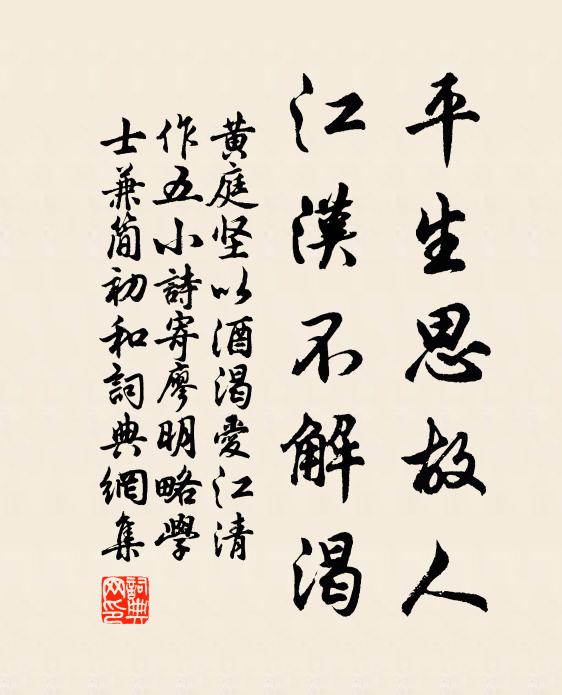 平生思故人
江漢不解渴
黄庭坚以酒渴愛江清
作五小詩寄廖明略學
士兼简初和詞典網集
詞典網印